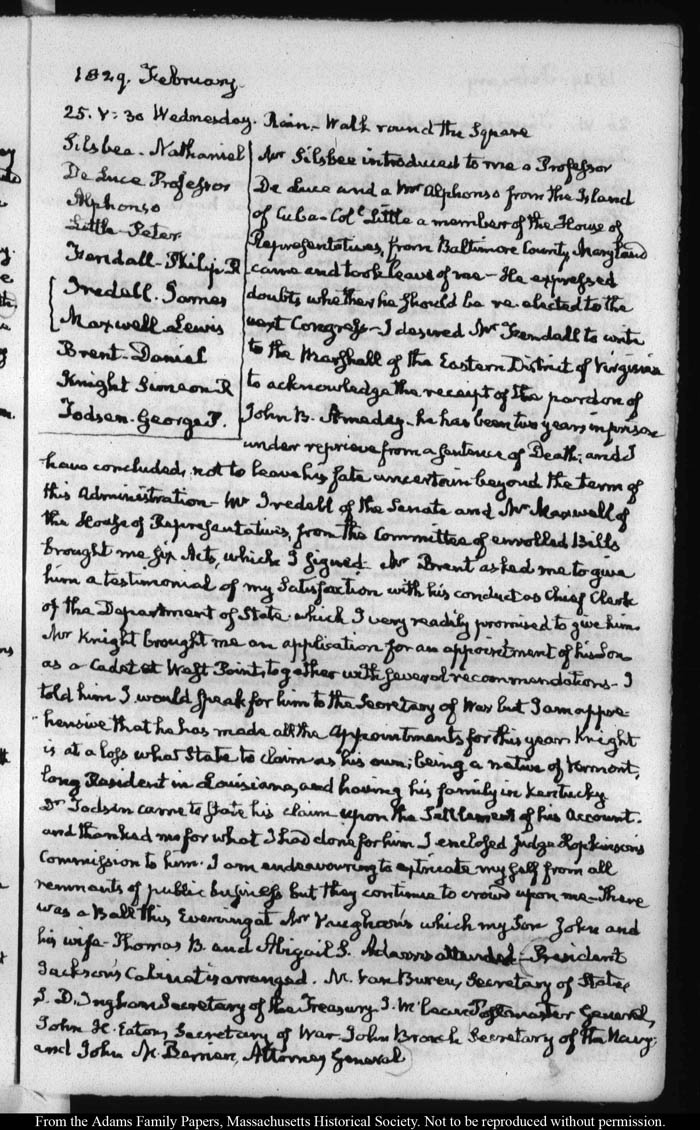 1829. February.
25. V: 30 Wednesday. Rain - Walk round the Square
Silsbee - Nathaniel
De Luce Professor
Alphonso
Little - Peter
Kendall - Philip. R
Iredell. James
Maxwell Lewis
Brent - Daniel
Knight Simeon. R
Todsen - George P.
Mr Silsbee introduced to me a Professor
De Luce and a Mr Alphonso from the Island
of Cuba - Coll. Little a member of the House of
Representatives, from Baltimore County, Maryland
came and took leave of me - He expressed
doubts whether he should be re-elected to the
next Congress - I desired Mr Kendall to write
to the Marshall of the Eastern District of Virginia
to acknowledge the receipt of the pardon of
John B. he has been two years in prison
under reprieve from a Sentence of Death; and I
have concluded, not to leave his fate uncertain beyond the term of
this Administration - Mr Iredell of the Senate and Mr Maxwell of
the House of Representatives, from the Committee of enrolled Bills
brought me six Acts, which I signed. Mr Brent asked me to give
him a testimonial of my Satisfaction with his conduct as Chief Clerk
of the Department of State which I very readily promised to give him.
Mr Knight brought me an application for an appointment of his Son
as a Cadet at West Point, together with several recommendations - I
told him I would speak for him to the Secretary of War but I am appre-
hensive that he has made all the Appointments for this year. Knight
is at a loss what State to claim as his own; being a native of Vermont,
long Resident in Louisiana, and having his family in Kentucky
Dr Todsen came to state his claim upon the Settlement of his Account.
and thanked me for what I had done for him. I enclosed Judge Hopkinson's
Commission to him. I am endeavouring to extricate myself from all
remnants of public business but they continue to crowd upon me - There
was a Ball this Evening at Mr Vaughan's which my Son John and
his wife - Thomas B. and Abigail S. Adams attended - President
Jackson's Cabinet is arranged. M. Van Buren, Secretary of State,
S. D. Ingham Secretary of the Treasury. J. McLean Postmaster General,
John H. Eaton, Secretary of War - John Branch Secretary of the Navy;
and John M. Berrien, Attorney General
From the Adams Family Papers, Massachusetts Historical Society. Not to be reproduced without permission.